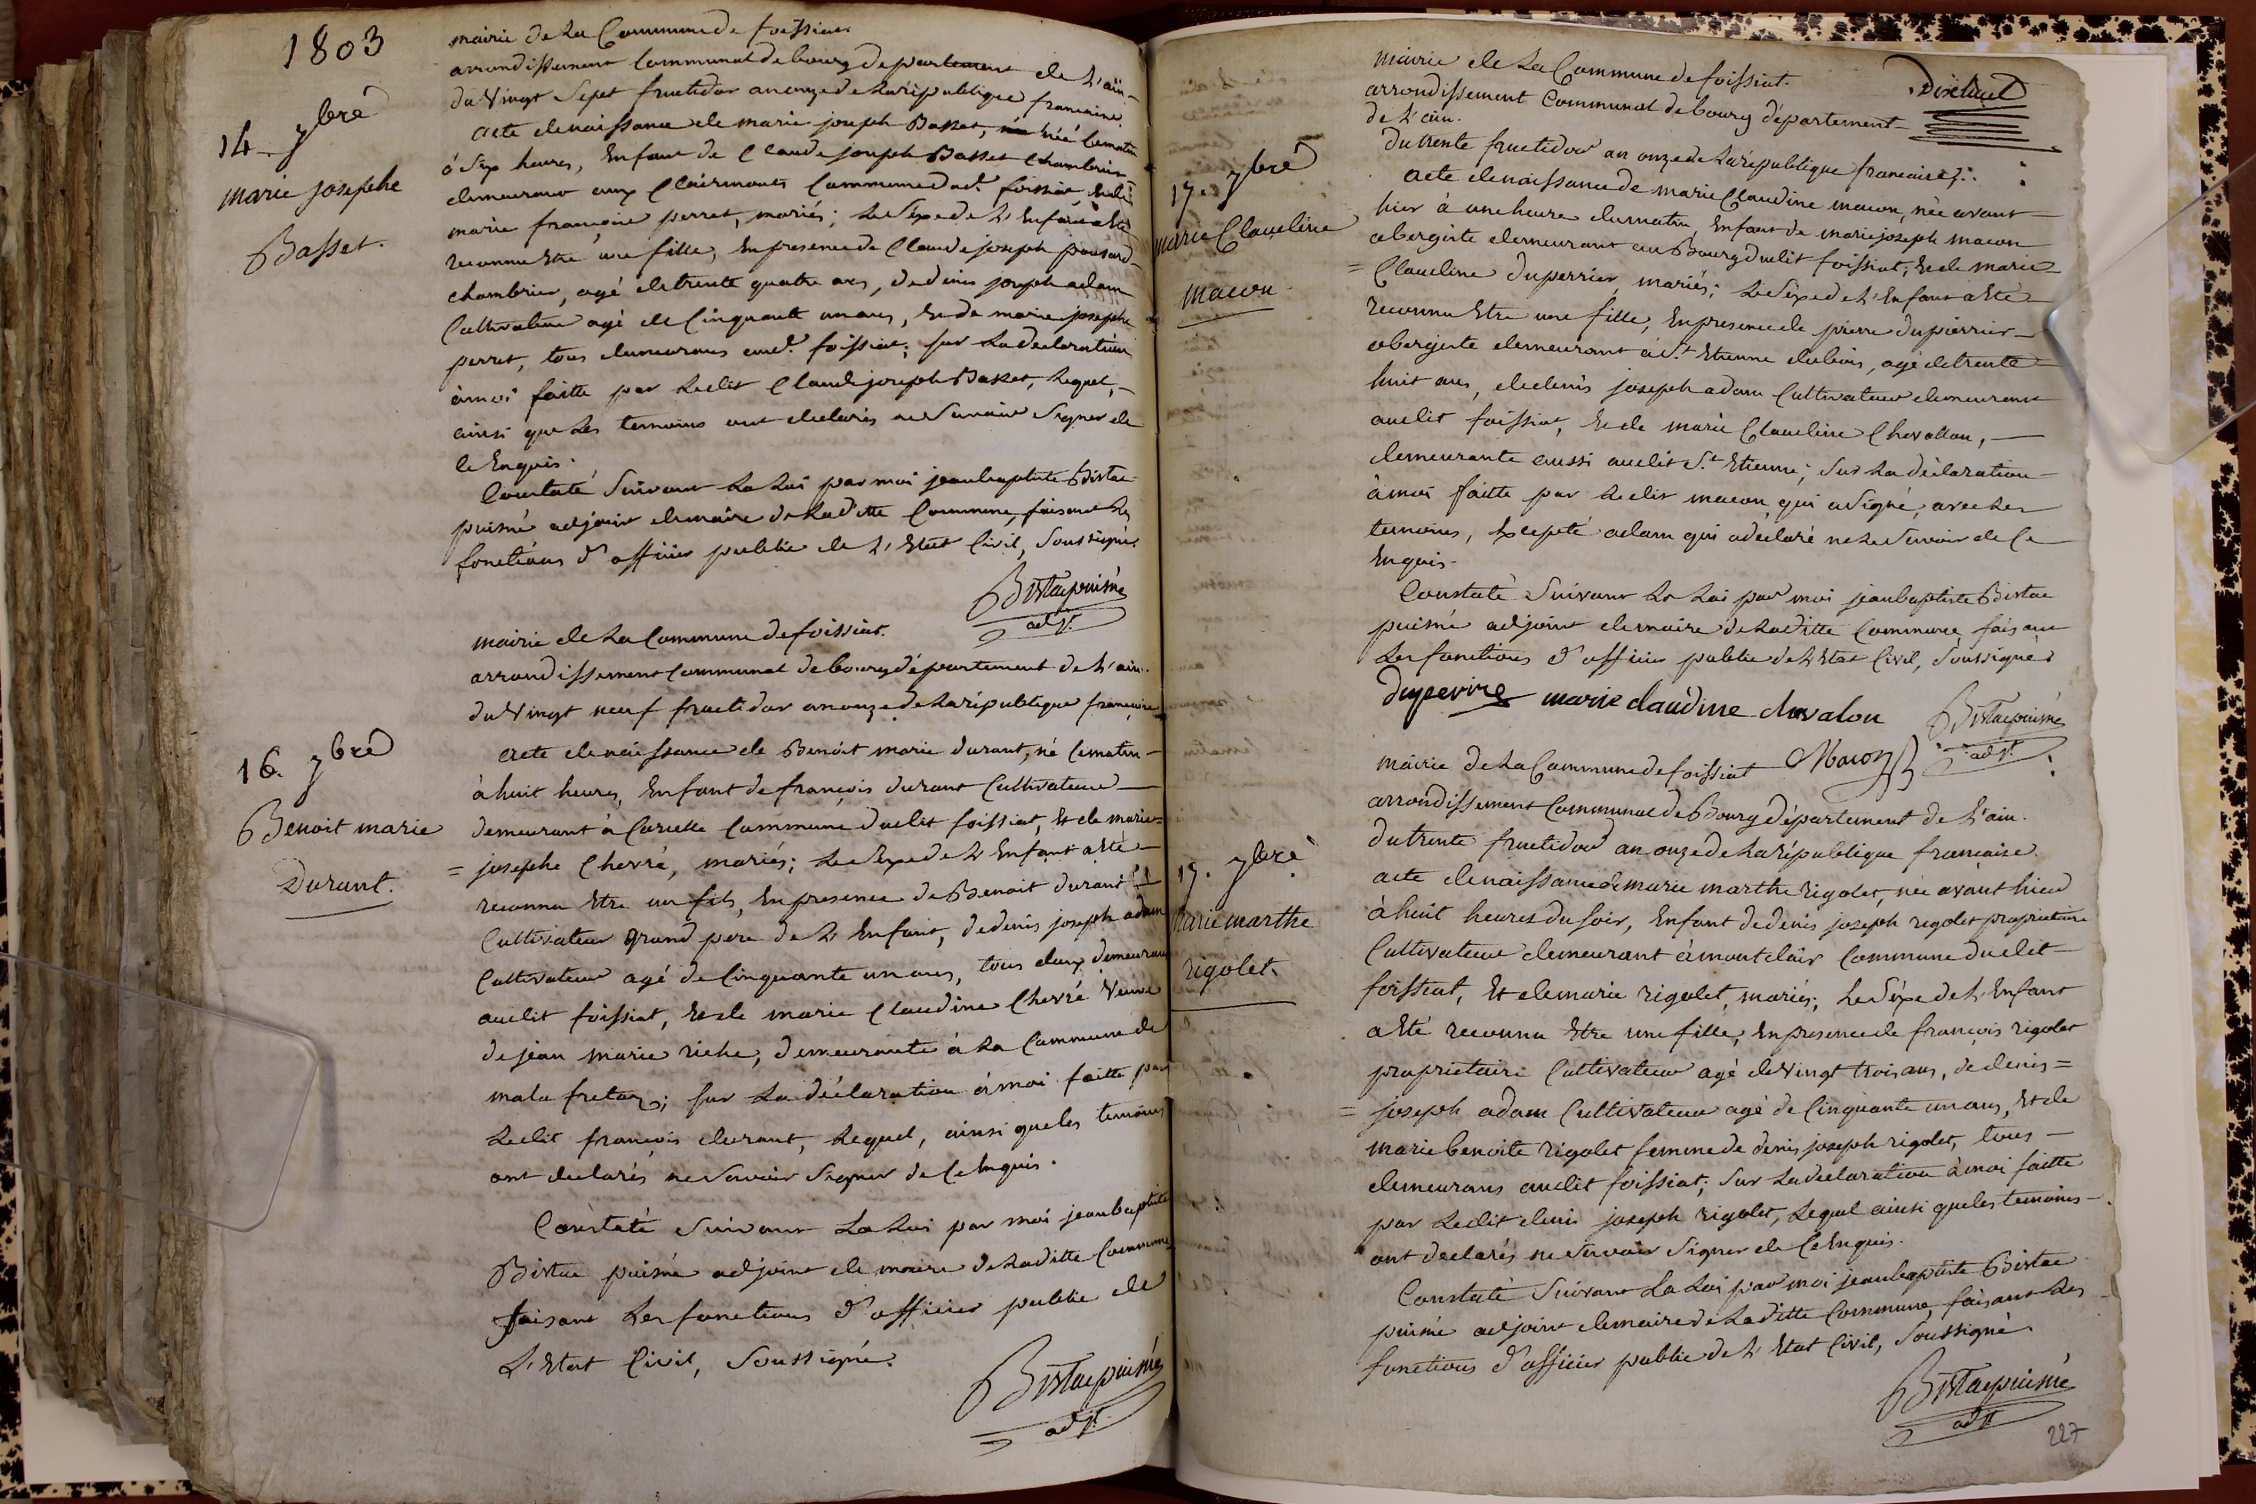 1803
14. 7bre
marie josephe
Basset.
mairie de la Commune de foissiat.
arrondissement Communal de bourg departement de L'ain.
du Vingt Sept fructidor an onze de la république francaise.
acte de naissance de marie joseph Basset, née Cematin
à Six heures, Enfant de Claude joseph Basset Chambrier
demeurant aux Clairmonts Commune dud. foissiat et de
marie francoise perret, mariés; Le Sexe de L'Enfant a Eté
reconnu Etre une fille, En presence de Claude joseph ponsard
chambrier, agé de trente quatre ans, de denis joseph adam
Cultivateur agé de Cinquante un ans, Et de marie josephe
perret, tous demeurans aud. foissiat; sur La declaration
à moi faitte par Ledit Claude joseph Basset, Lequel,
ainsi que Les temoins ont declarés ne Savoir Signer de
Ce Enquis.
Constaté Suivant La Loi par moi jean baptiste Bistac
puisné adjoint de maire de Laditte Commune, faisant Les
fonctions d'officier public de L'Etat Civil, Soussigné.
Bistac puisné
adjt.
16. 7bre
Benoit marie
Durant.
mairie de La Commune de foissiat.
arrondissement Communal de bourg département de L'ain.
du Vingt neuf fructidor an onze de La république francaise
acte de naissance de Benoit marie durant, né Cematin
à huit heures, Enfant de françois durant Cultivateur
demeurant à Cormelle Commune dudit foissiat, Et de marie=
= josephe Chevré, mariés; Le Sexe de L'Enfant a Eté
reconnu Etre un fils, En presence de Benoit durant
Cultivateur grand pere de L'Enfant, de denis joseph adam
Cultivateur agé de Cinquante un ans, tous deux demeurant
audit foissiat, Et de marie Claudine Chevré Veuve
de jean marie riche, demeurante à La Commune de
mala fretaz; sur La déclaration à moi faitte par
Ledit françois durant, Lequel, ainsi que les temoins
ont declarés ne Savoir Signer de Ce Enquis.
Constaté Suivant La Loi par moi jean baptiste
Bistac puisné adjoint de maire de Laditte Commune
faisant Les fonctions d'officier public de
L'Etat Civil, Soussigné.
Bistac puisné
adjt.
17. 7bre
marie Claudine
macon
mairie de La Commune de foissiat.
arrondissement Communal de bourg département
de L'ain.
du trente fructidor an onze de La république francaise.
acte de naissance de marie Claudine macon, née avant
hier à une heure du matin, Enfant de marie joseph macon
abergiste demeurant au Bourg dudit foissiat, Et de marie
= Claudine duperrier, mariés; Le Sexe de L'Enfant a Eté
reconnu Etre une fille, En presence de pierre duperrier
abergiste demeurant à St. Etienne dubois, agé de trente
huit ans, de denis joseph adam Cultivateur demeurant
audit foissiat, Et de marie Claudine Chevallon,
demeurante aussi audit St. Etienne; Sur La déclaration
à moi faitte par Ledit macon qui a Signé, avec Les
temoins, Excepté adam qui a declaré ne Le Savoir de Ce
Enquis.
Constaté Suivant La Loi par moi jean baptiste Bistac
puisné adjoint de maire de Laditte Commune faisant
Les fonctions d'officier public de L'Etat Civil, Soussigné.
Duperire marie claudine chevalon
Bistac puisné
adjt.
Macon
17. 7bre
Marie marthe
rigolet.
mairie de La Commune de foissiat
arrondissement Communal de Bourg département de L'ain.
du trente fructidor an onze de La république francaise.
acte de naissance de marie marthe rigolet, née avant hier
à huit heures du soir, Enfant de denis joseph rigolet propriétaire
Cultivateur demeurant à montclair Commune dudit
foissiat, Et de marie rigolet, mariés; Le Sexe de L'Enfant
a Eté reconnu Etre une fille, En presence de françois rigolet
proprietaire Cultivateur agé de Vingt trois ans, de denis=
= joseph adam Cultivateur agé de Cinquante un ans, Et de
marie benoite rigolet femme de denis joseph rigolet, tous
demeurans audit foissiat; Sur La declaration à moi faitte
par Ledit denis joseph rigolet, Lequel ainsi que les temoins
ont declarés ne Savoir Signer de Ce Enquis.
Constaté Suivant La Loi par moi jean baptiste Bistac
puisné adjoint de maire de Laditte Commune, faisant Les
fonctions d'officier public de L'Etat Civil, Soussigné.
Bistac puisné
adjt
227